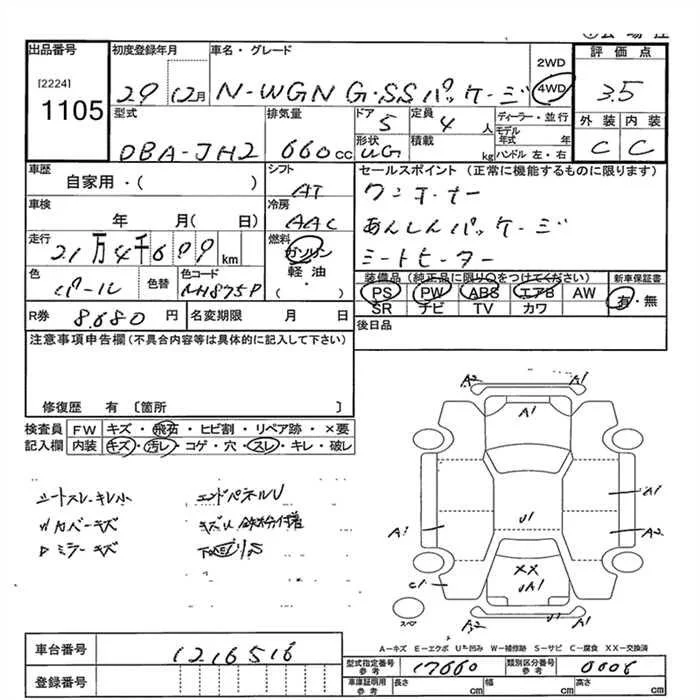 出品番号 初度登録年月 車名・グレード 2WD 評価点
[2224] 29 12月 N-WGN G・SSパッケージ 4WD 3.5
1105
型式 排気量 ドア 5 定員 4 人 ディーラー・並行 外装 内装
モデル年式 年
DBA-JH2 660cc 形状 WG 積載 kg ハンドル 左・右 C C
車歴 シフト セールスポイント (正常に機能するものに限ります)
自家用・( ) AT ワンオーナー
車検 冷房
年 月( 日) AAC あんしんパッケージ
走行 燃料
21万4千699km ガソリン シートヒーター
色 色替 色コード 軽油 装備品 (純正品に限り○をつけてください) 新車保証書
パール NH875P ( ・ ) PS PW ABS エアB AW 有・無
SR ナビ TV カワ
R券 8,680 円 名変期限 月 日 後日品
注意事項申告欄 (不具合内容等は具体的に記入して下さい)
修復歴 有 〔箇所 〕
検査員 FW キズ・飛石・ヒビ割・リペア跡・×要
記入欄 内装 キズ・汚レ・コゲ・穴・スレ・キレ・破レ
A2 A1
A1
シートスレ・キレ小 エンドパネルU
A1
内カバーキズ
A1 U1 A2
ミラーキズ
XX
C1 UA1
スペ
A2 A1
A-キズ E-エクボ U-凹み W-補修跡 S-サビ C-腐食 XX-交換済
車台番号 1216516
型式指定番号 参考 17660 類別区分番号 参考 0006
登録番号 車庫証明用 参考 長さ cm 幅 cm 高さ cm